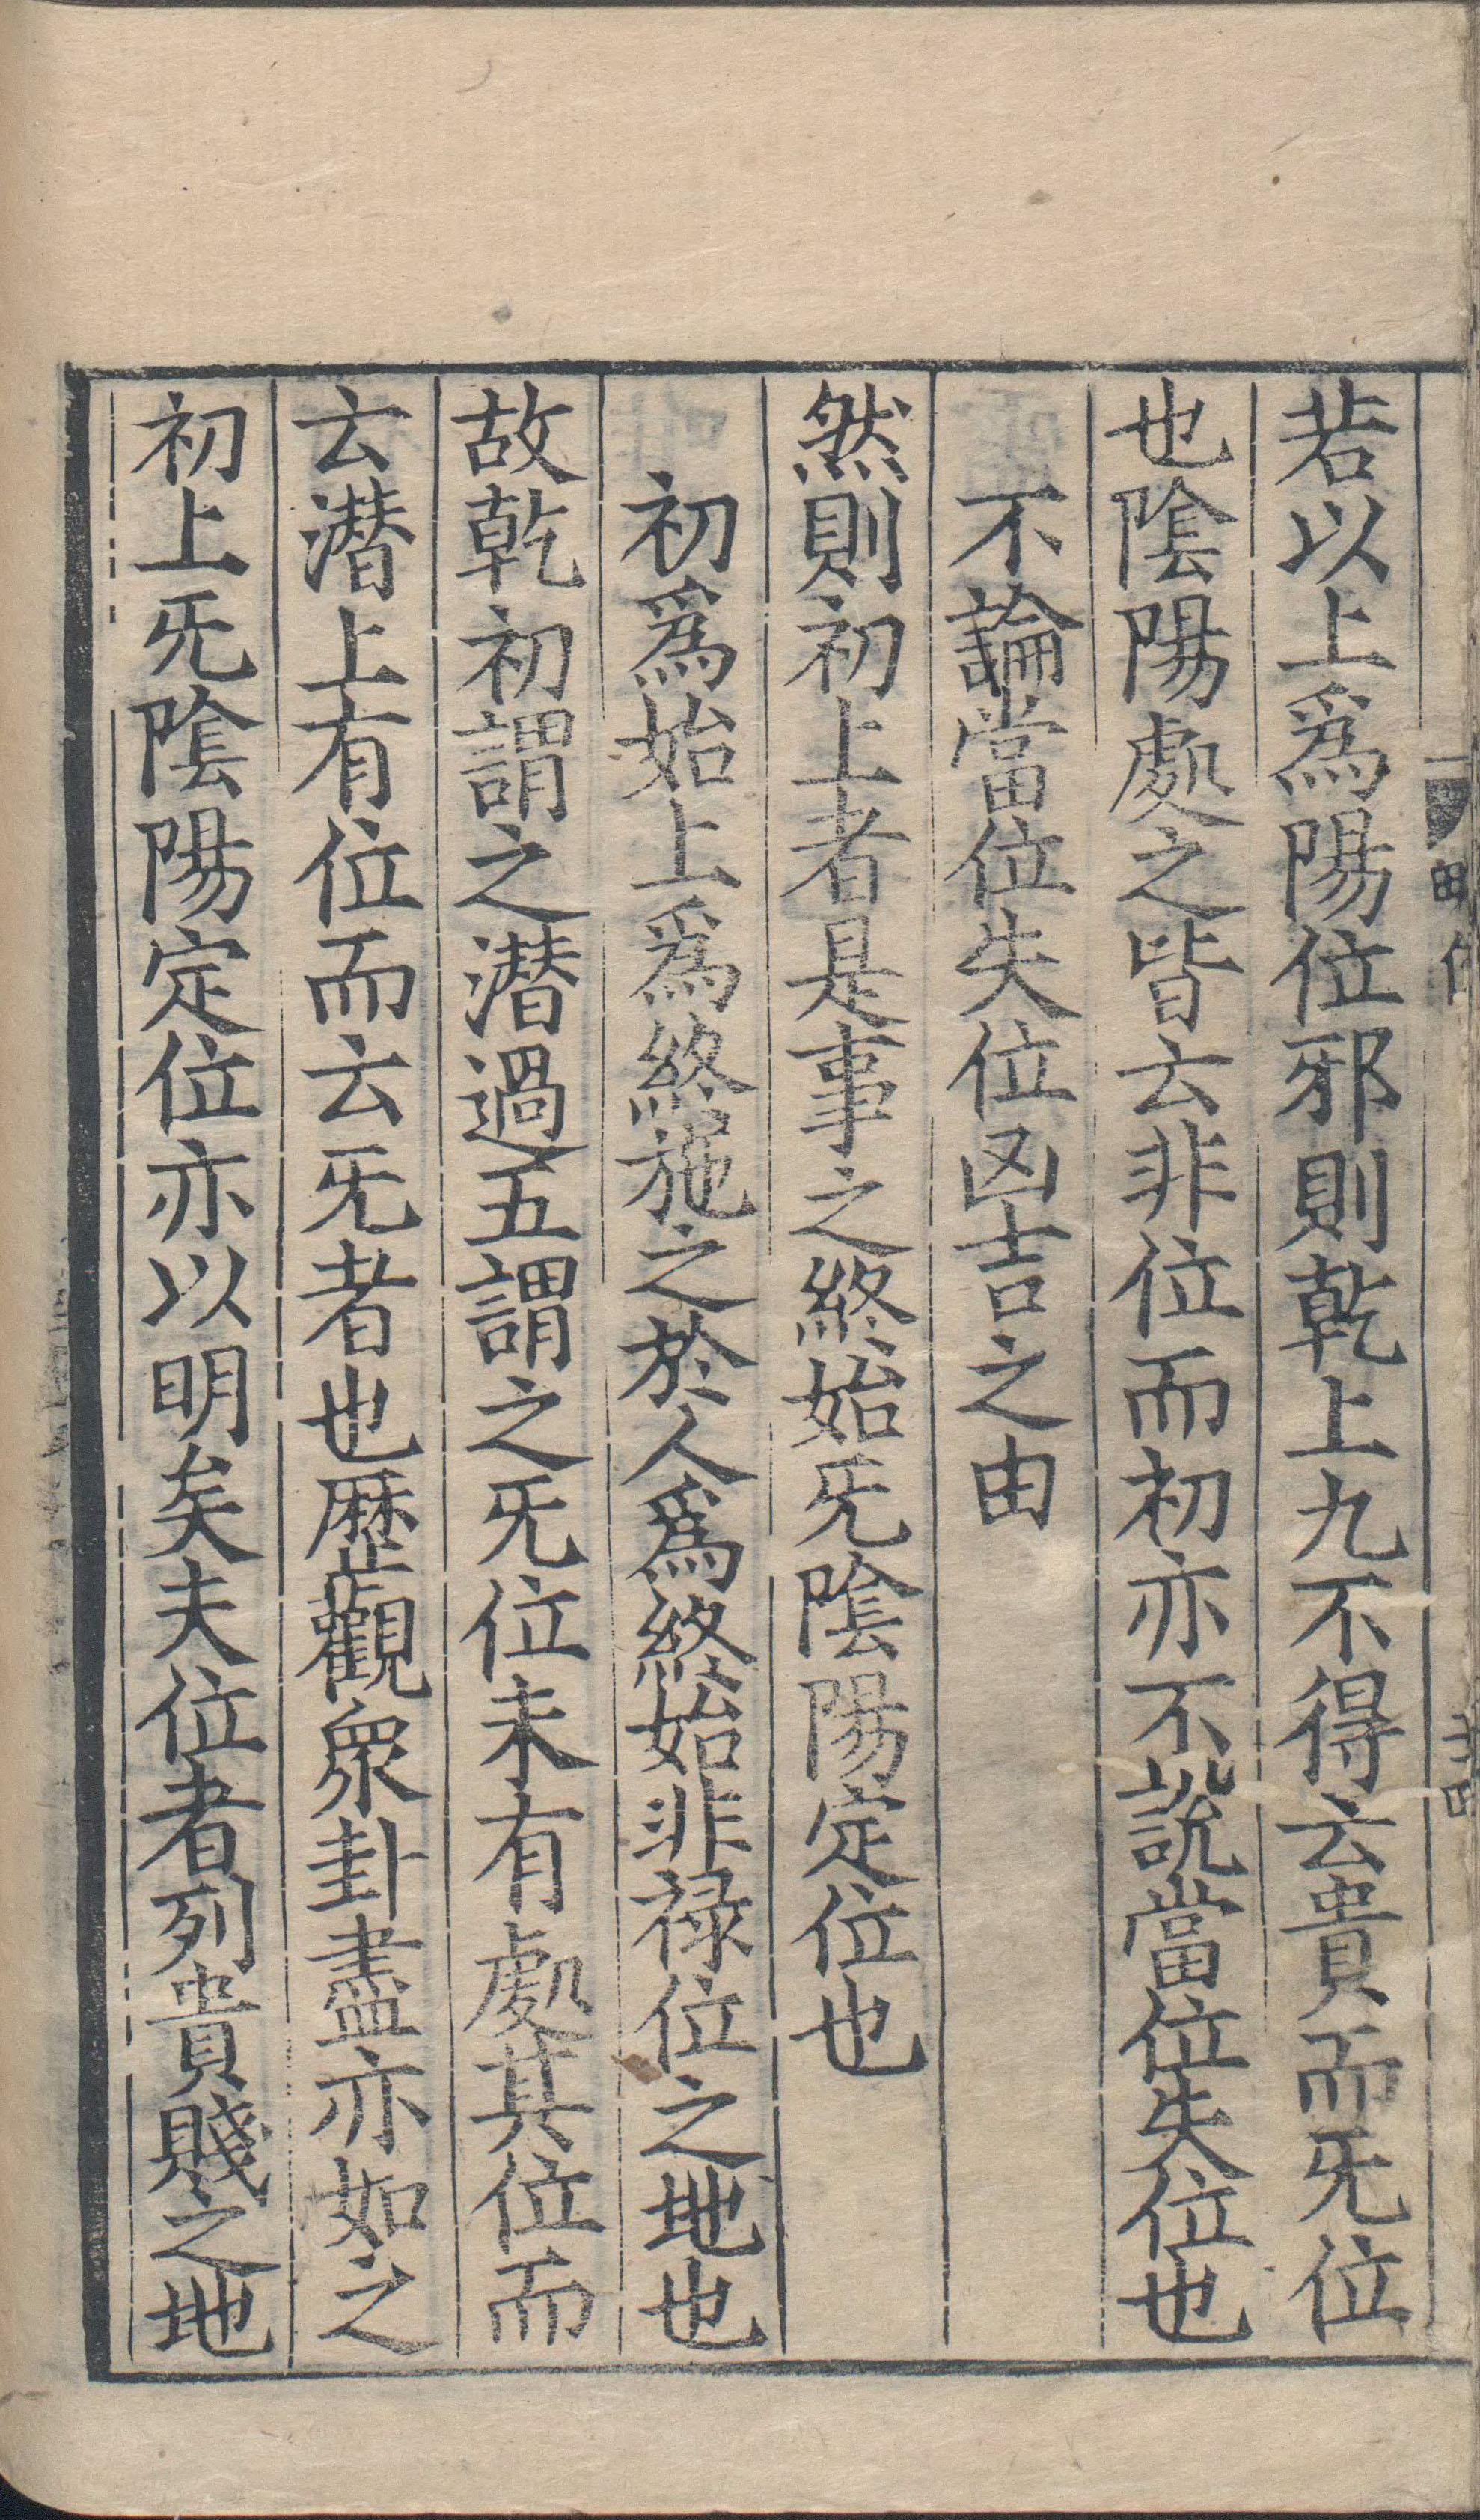 若以上爲陽位邪則乾上九不得云貴而旡位
也陰陽處之皆云非位而初亦不說當位失位也
不論當位失位凶吉之由
然則初上者是事之終始旡陰陽定位也
初爲始上爲終施之於人爲終始非祿位之地也
故乾初謂之潜過五謂之旡位未有處其位而
云潜上有位而云旡者也歷觀衆卦盡亦如之
初上旡陰陽定位亦以明矣夫位者列貴賤之地